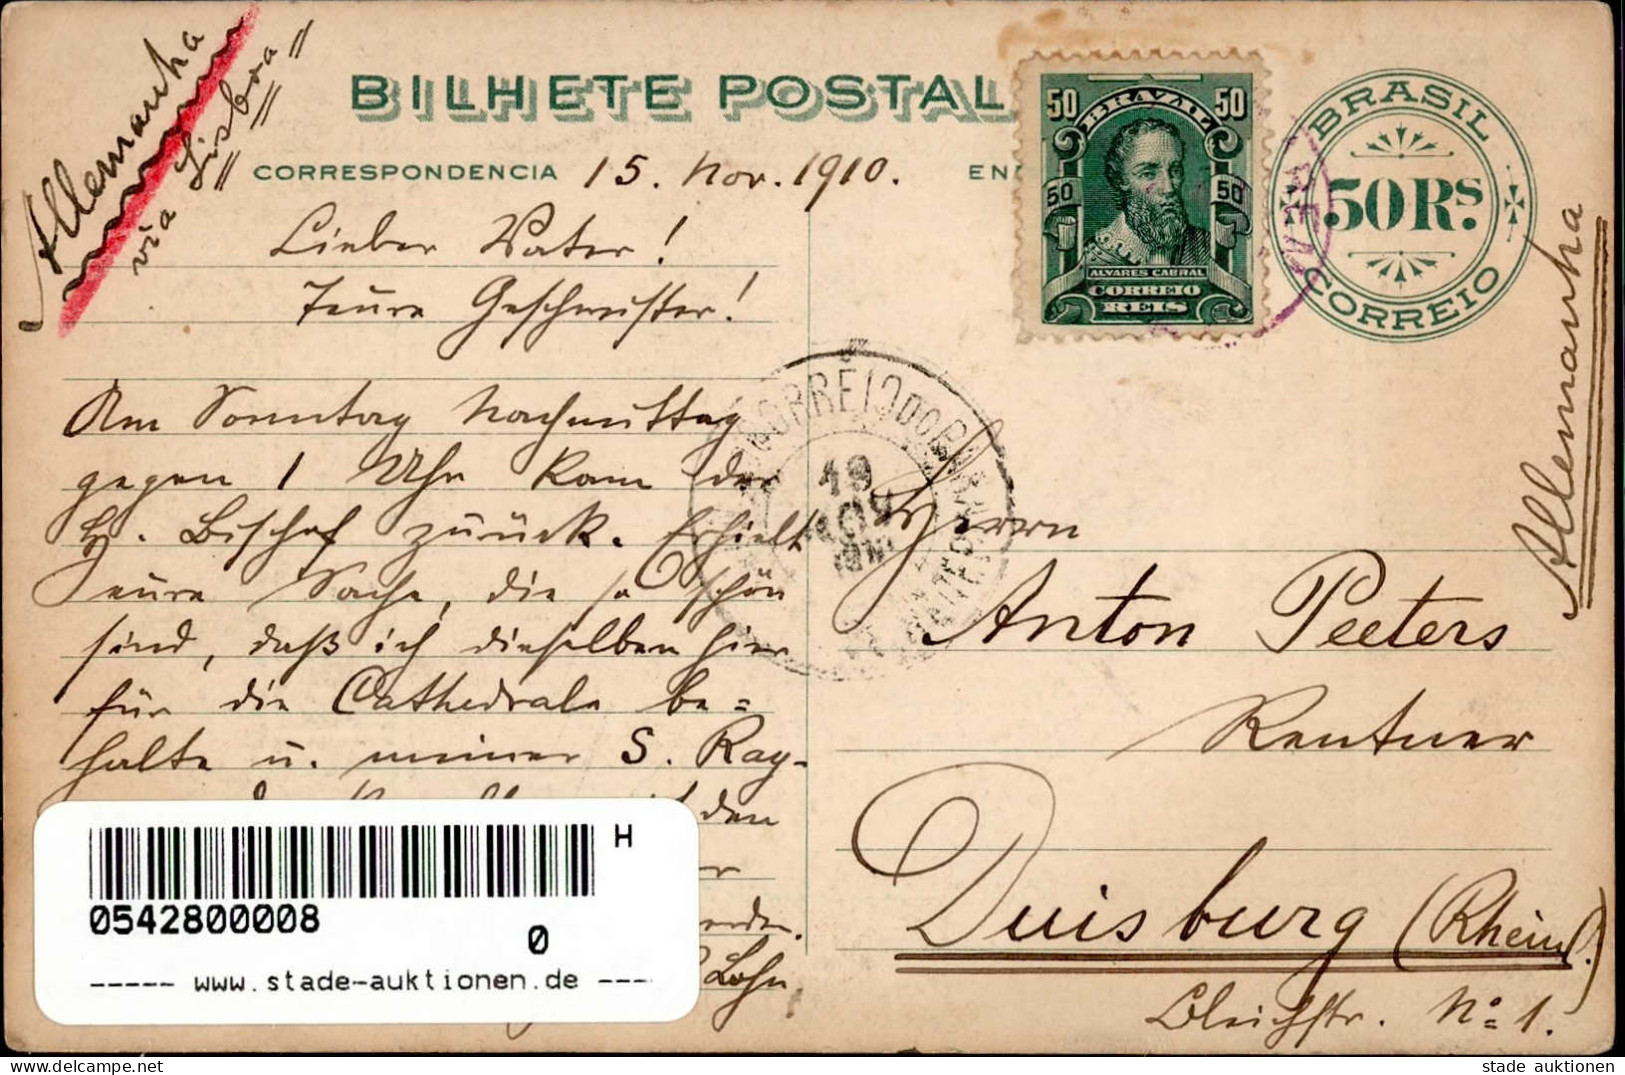 Allemanha
via Lisboa
BILHETE POSTAL
CORRESPONDENCIA 15. Nov. 1910.
Lieber Vater!
Teure Geschwister!
Am Sonntag Nachmittag
gegen 1 Uhr kam der
H. Bischof zurück. Erhielt
eure Sache, die so schön
sind, daß ich dieselben hier
für die Cathedrale be=
halte u. meiner S. Ray-
den
Lohn
50 BRAZIL 50
50 50
ALVARES CABRAL
CORREIO
REIS
BRASIL
50 RS.
CORREIO
CORREIO DO
19
NOV
Allemanha
Herrn
Anton Peeters
Rentner
Duisburg (Rheinl.)
Bleichstr. No 1.
H
0542800008
0
----- www.stade-auktionen.de ----
stade auktionen